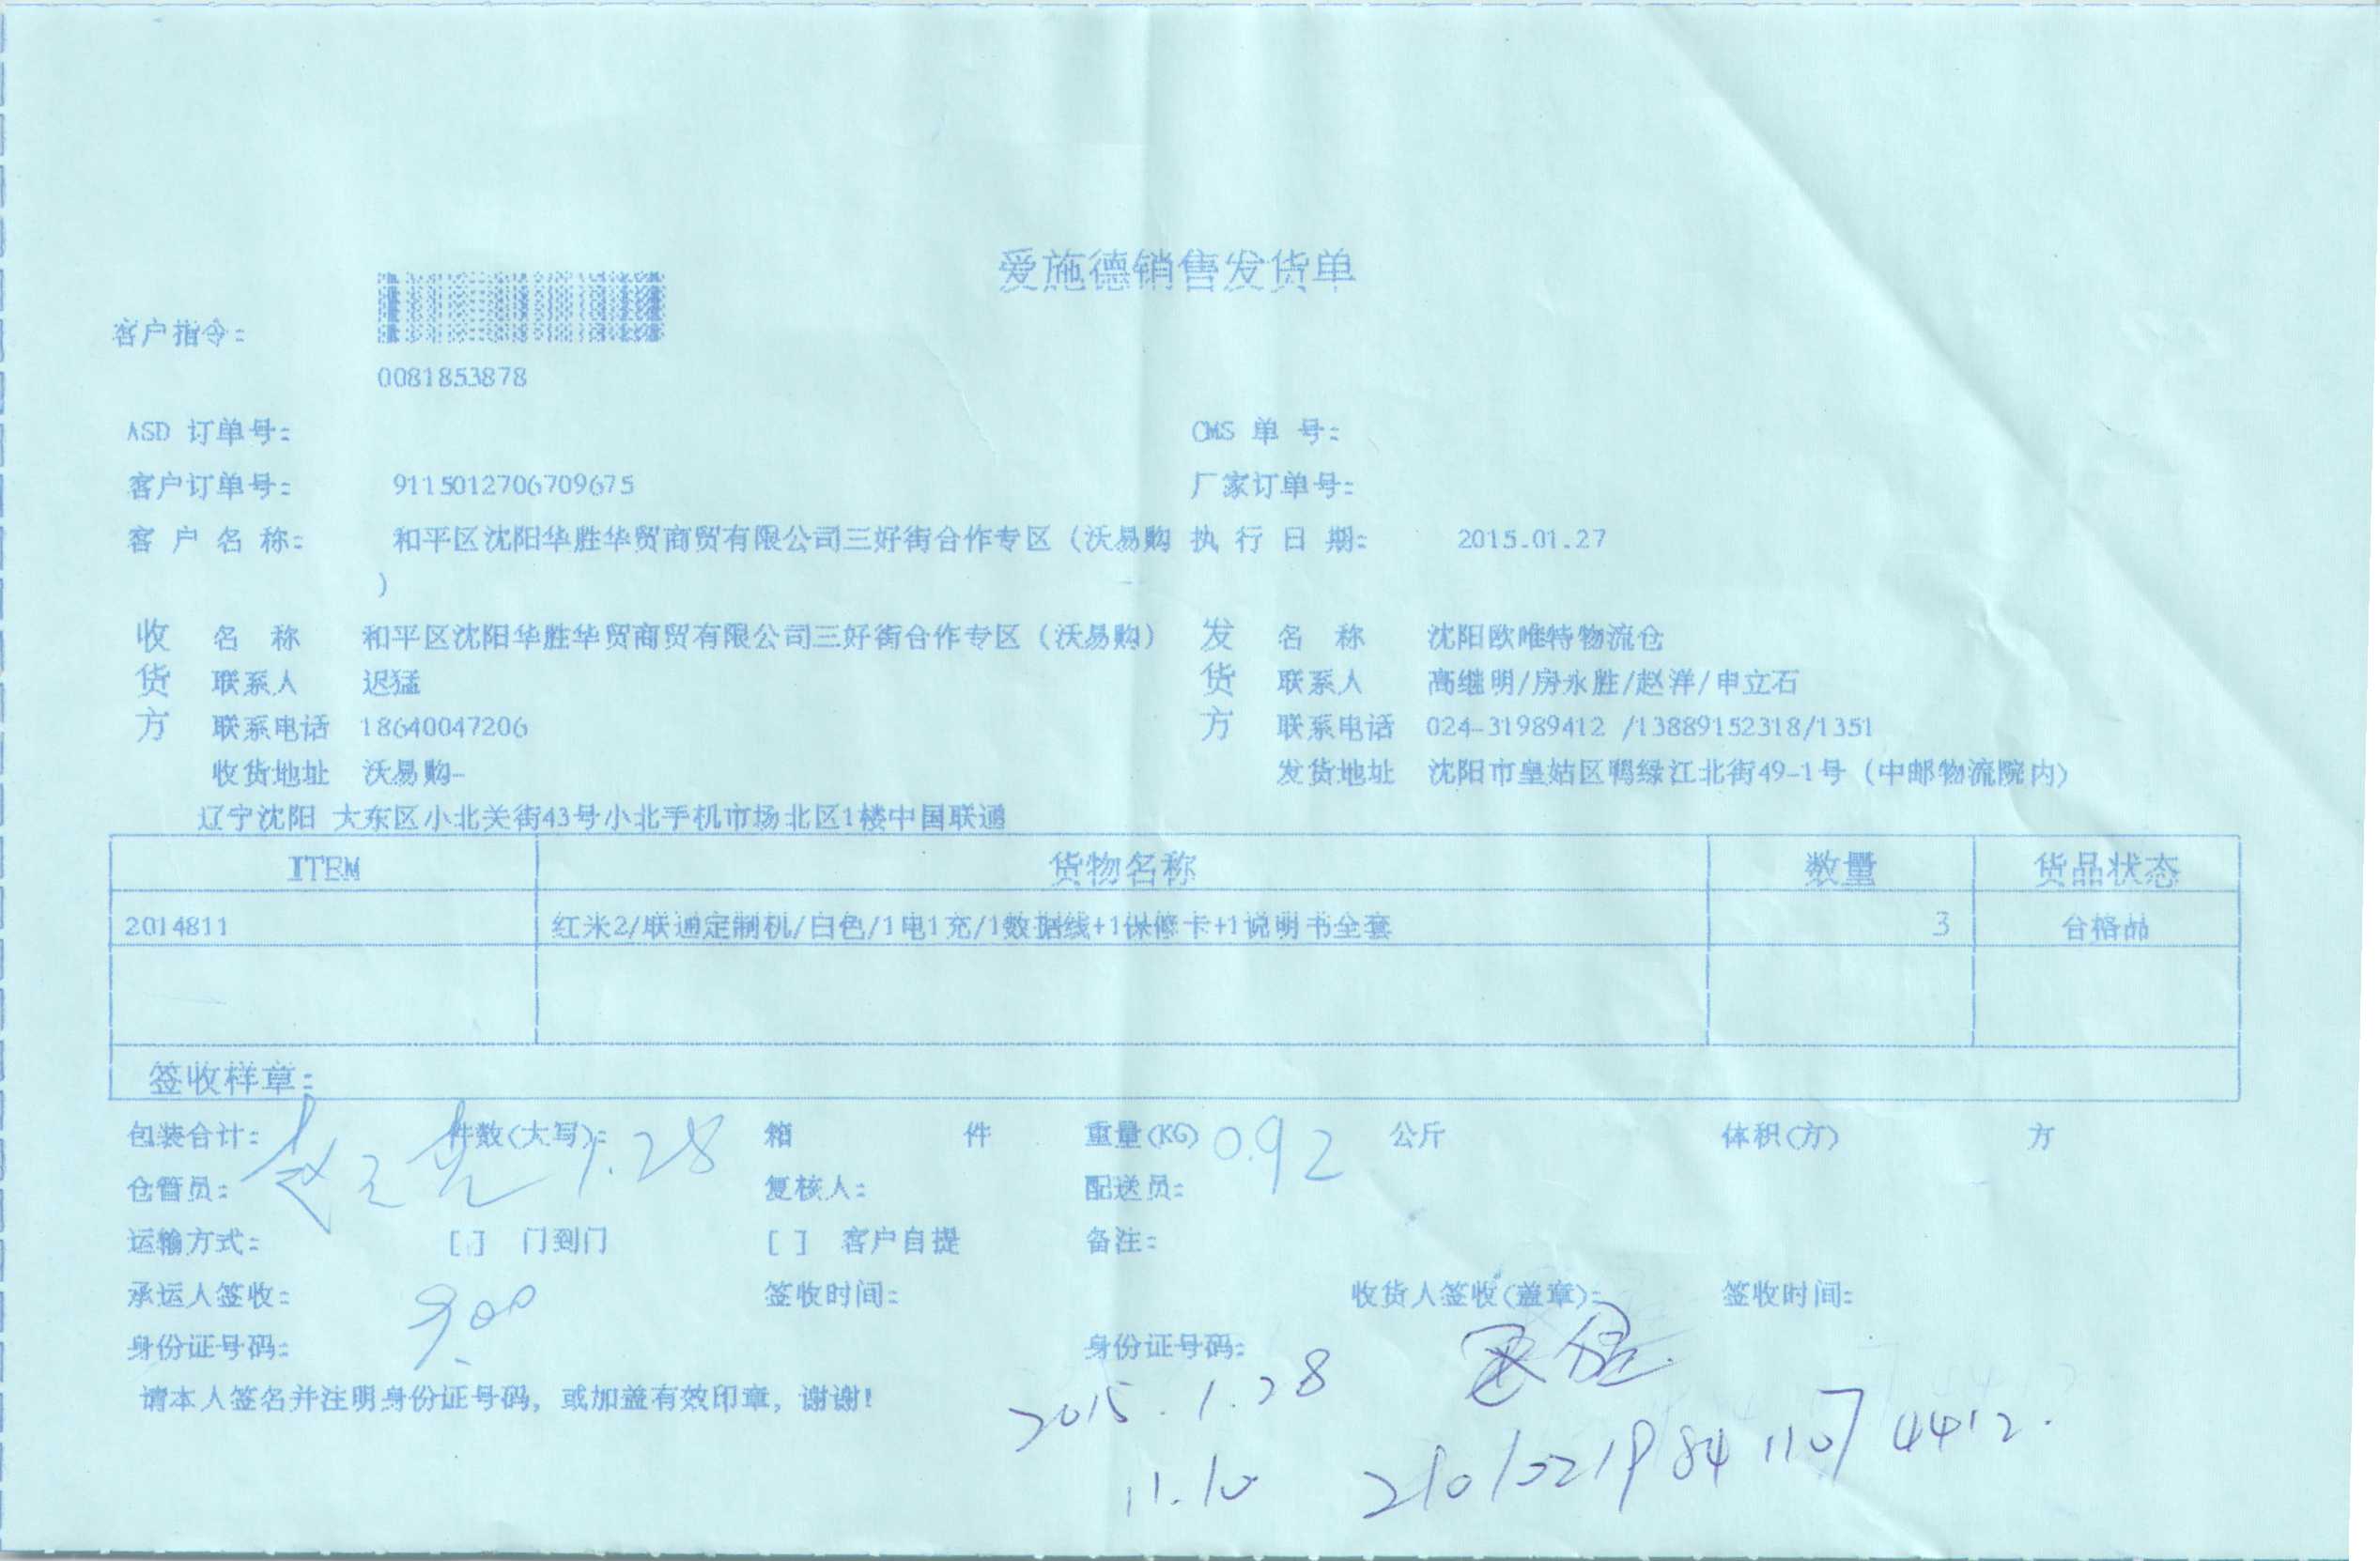 爱施德销售发货单
客户指令:
0081853878
ASD 订单号: CMS 单 号:
客户订单号: 9115012706709675 厂家订单号:
客 户 名 称: 和平区沈阳华胜华贸商贸有限公司三好街合作专区（沃易购 执 行 日 期: 2015.01.27
）
收 名 称 和平区沈阳华胜华贸商贸有限公司三好街合作专区（沃易购） 发 名 称 沈阳欧唯特物流仓
货 联系人 迟猛 货 联系人 高继明/房永胜/赵洋/申立石
方 联系电话 18640047206 方 联系电话 024-31989412 /13889152318/1351
收货地址 沃易购- 发货地址 沈阳市皇姑区鸭绿江北街49-1号（中邮物流院内）
辽宁沈阳 大东区小北关街43号小北手机市场北区1楼中国联通
ITEM 货物名称 数量 货品状态
2014811 红米2/联通定制机/白色/1电1充/1数据线+1保修卡+1说明书全套 3 合格品
签收样章:
包装合计: 件数(大写): 1.28 箱 件 重量(KG) 0.92 公斤 体积(方) 方
仓管员: 复核人: 配送员:
运输方式: [ ] 门到门 [ ] 客户自提 备注:
承运人签收: 签收时间: 收货人签收(盖章): 签收时间:
9:00
身份证号码: 身份证号码:
请本人签名并注明身份证号码，或加盖有效印章，谢谢！
2015.1.28
11.10 210102198411074412.